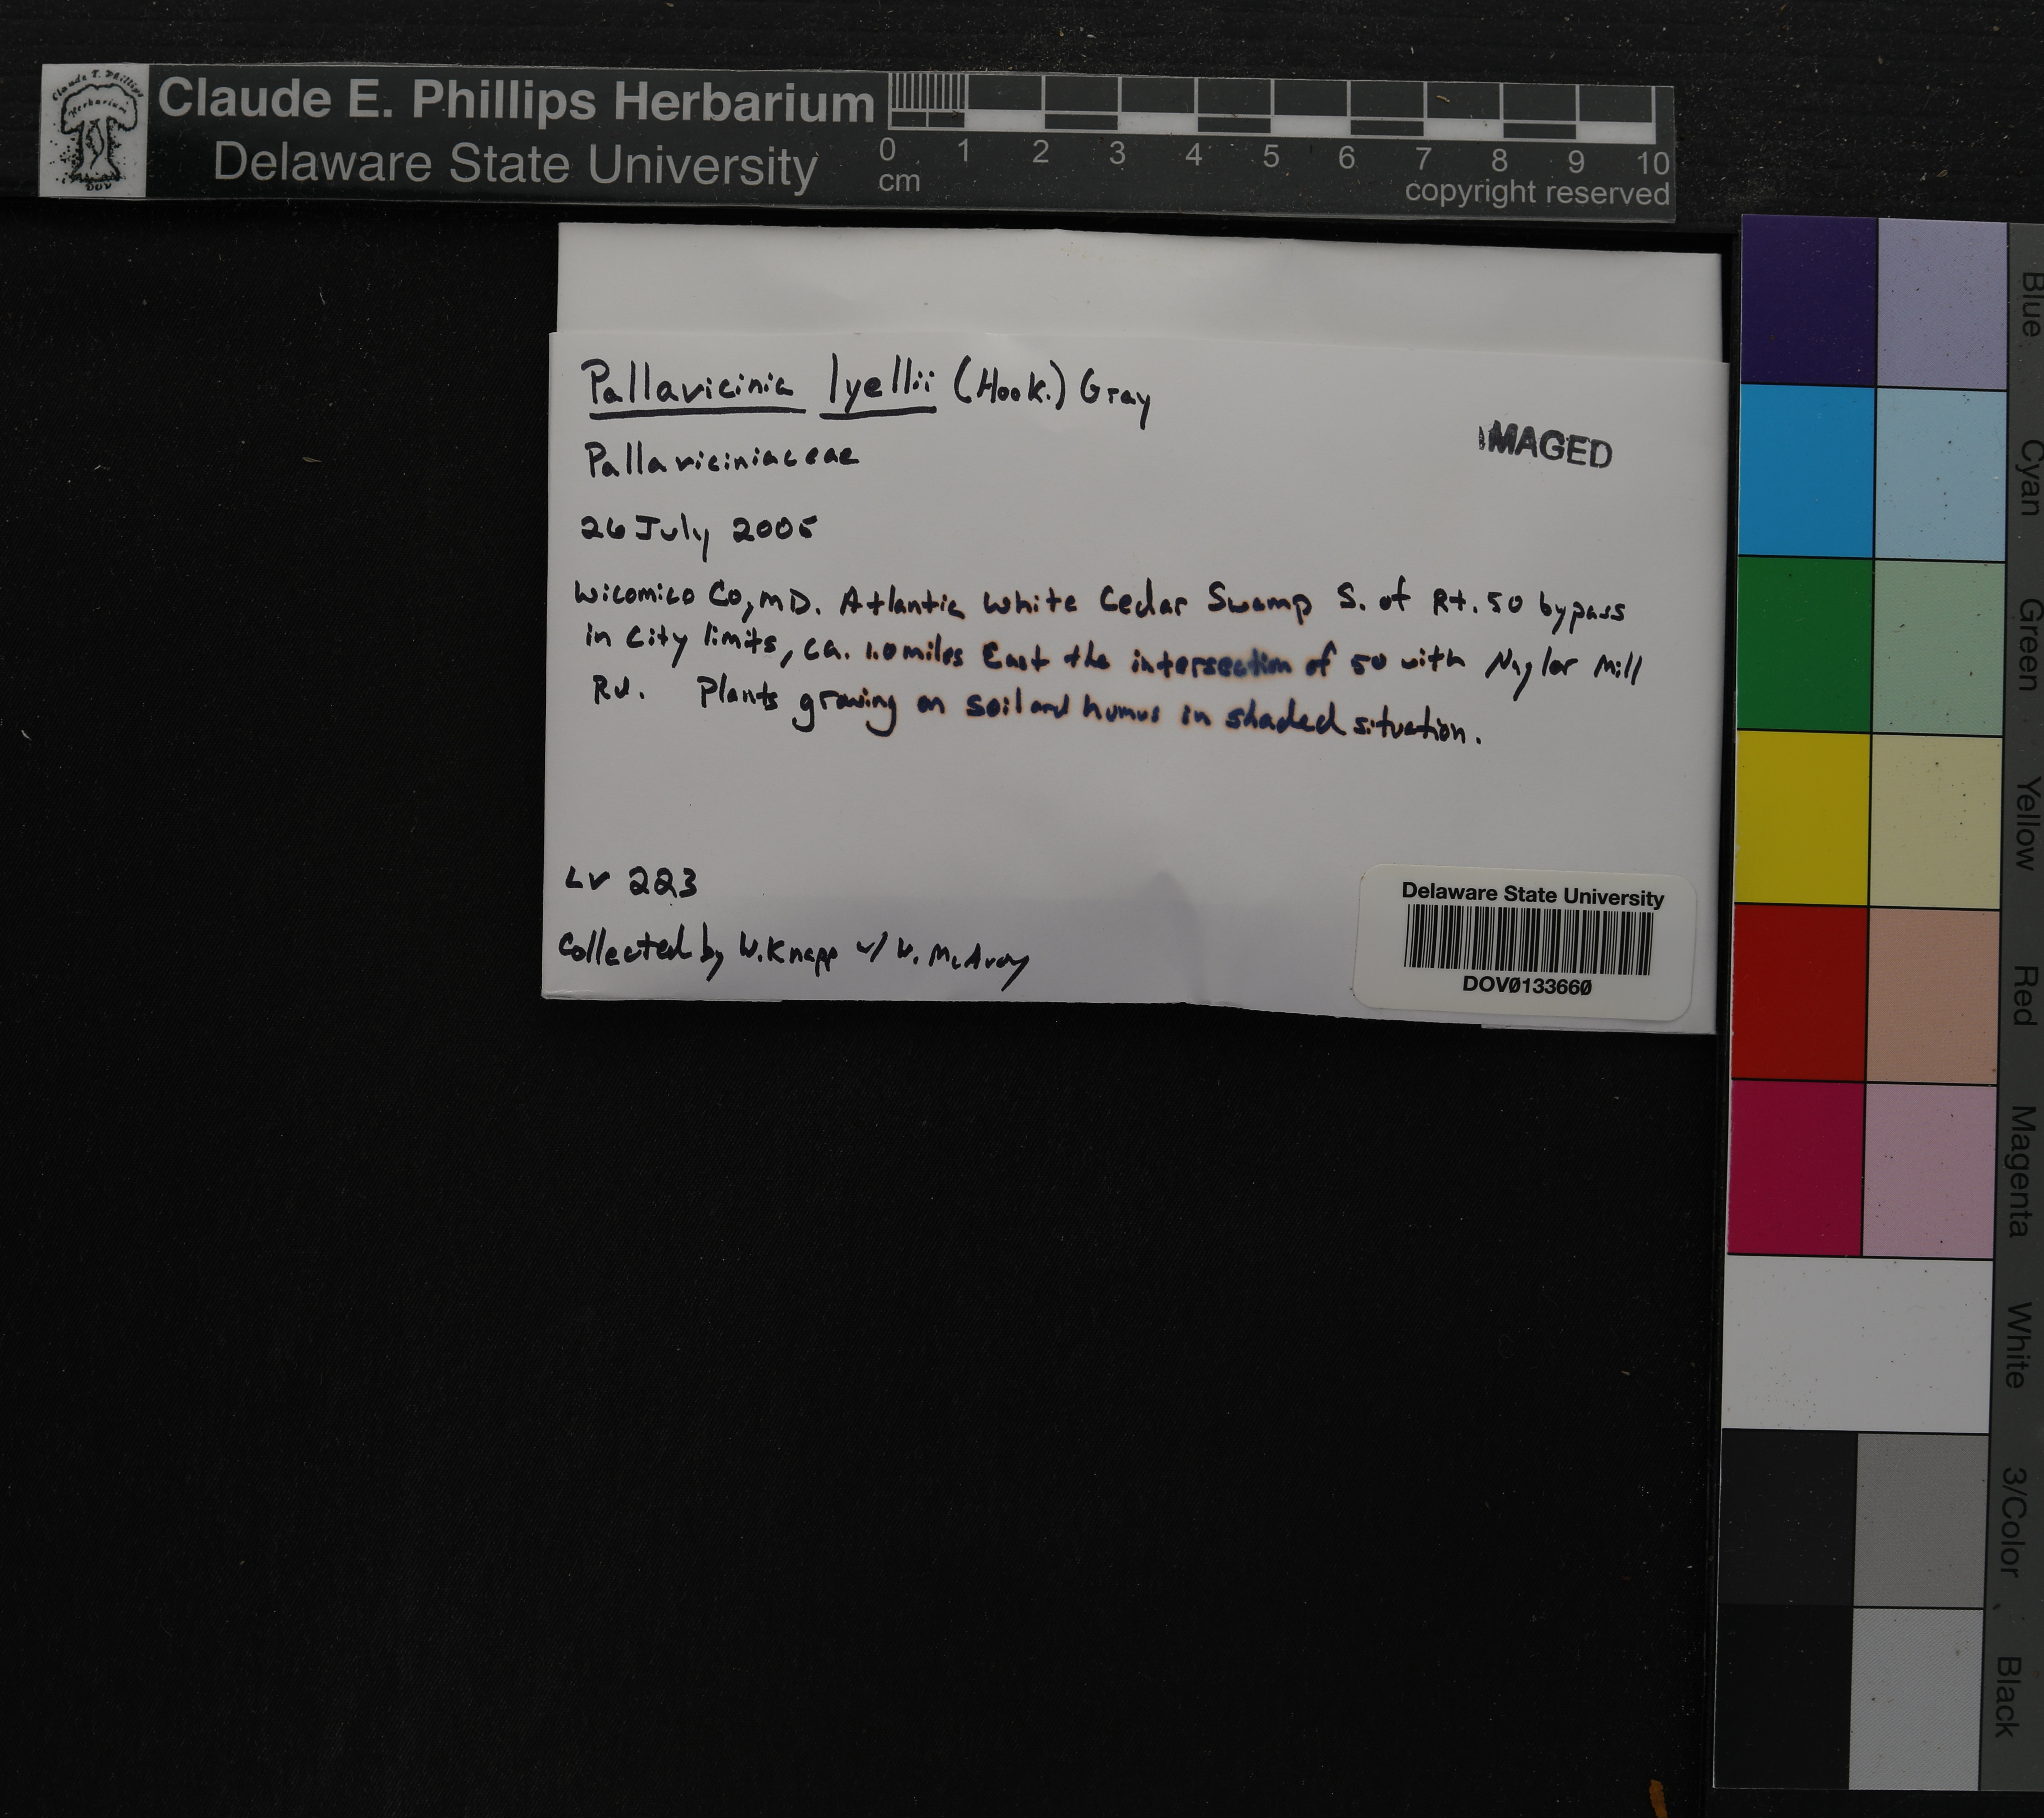 Claude E. Phillips Herbarium
Delaware State University
0 1 2 3 4 5 6 7 8 9 10
cm
copyright reserved
Pallavicinia lyellii (Hook.) Gray
Pallaviciniaceae
IMAGED
26 July 2005
Wicomico Co, MD. Atlantic White Cedar Swamp S. of Rt. 50 bypass
in City limits, ca. 1.0 miles East the intersection of 50 with Naylor Mill
Rd. Plants growing on soil and humus in shaded situation.
LV 223
Collected by W. Knapp w/ W. McAvoy
Delaware State University
DOV0133660
Blue
Cyan
Green
Yellow
Red
Magenta
White
3/Color
Black